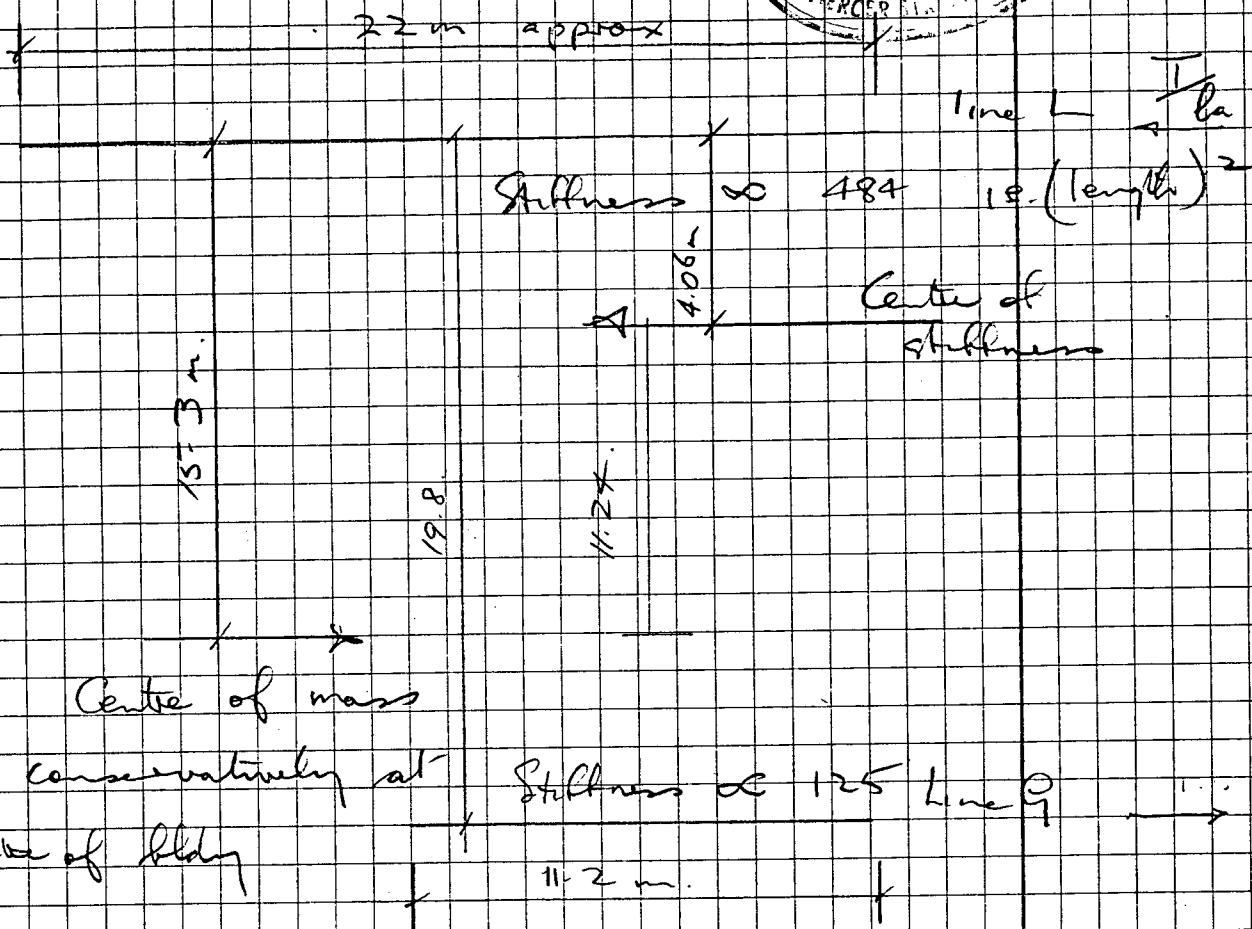 22 m approx
line L
Stiffness ∝ 484 i.e. (length)²
4.06 m
Centre of
stiffness
15.3 m.
19.8
11.24.
Centre of mass
conservatively at
of bldg
Stiffness ∝ 125 Line G
11.2 m.